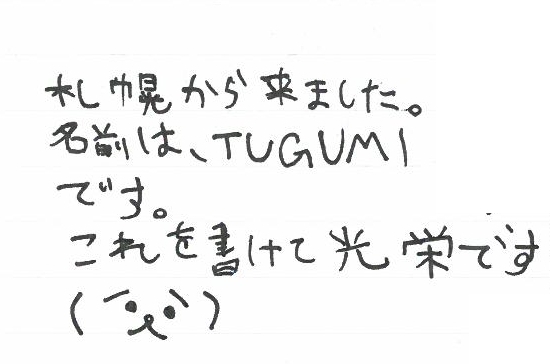 札幌から来ました。
名前は、TUGUMI
です。
これを書けて光栄です